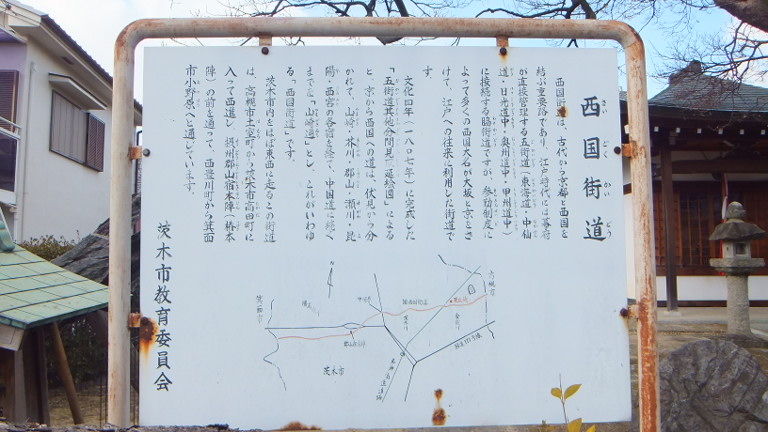 西国街道
さいごくかいどう
西国街道は、古代から京都と西国と
結ぶ重要路であり、江戸時代には幕府
が直接管理する五街道（東海道・中仙
道・日光道中・奥州道中・甲州道中）
に接続する脇街道ですが、参勤制度に
よって多くの西国大名が大坂と京とさ
けて、江戸への往来に利用した街道で
す。
文化四年（一八〇七年）に完成した
「五街道其他分間見取延絵図」による
と、京から西国への道は、伏見から分
かれて、山崎・芥川・郡山・瀬川・昆
陽・西宮の各宿を経て、中国道に続く
までを「山崎通」とし、これがいわゆ
る「西国街道」です。
茨木市内をほぼ東西に走るこの街道
は、高槻市土室町から茨木市高田町に
入って西進し、摂州郡山宿本陣（椿本
陣）の前を通って、西豊川町から箕面
市小野原へと通じています。
茨木市教育委員会
高槻市
箕面市
茨木市